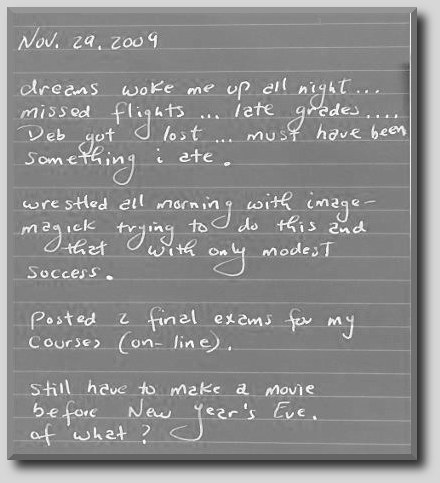 Nov. 29, 2009
dreams woke me up all night...
missed flights ... late grades....
Deb got lost ... must have been
something i ate.
wrestled all morning with image-
magick trying to do this and
that with only modest
success.
Posted 2 final exams for my
courses (on-line).
still have to make a movie
before New Year's Eve.
of what?